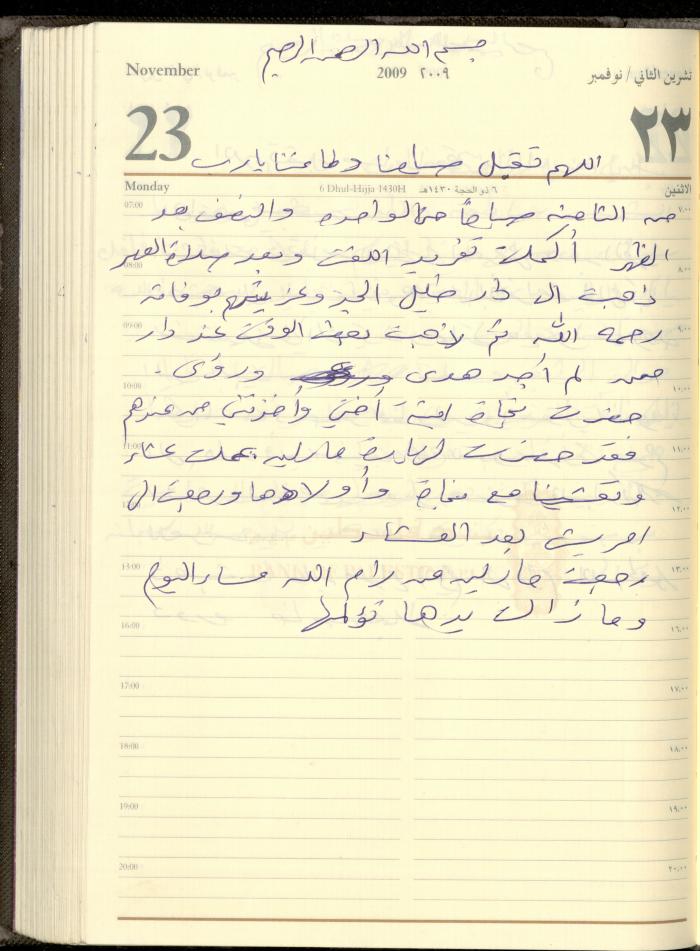 بسم الله الرحمن الرحيم
November 2009 ٢٠٠٩ تشرين الثاني / نوفمبر
23 ٢٣
اللهم تقبل صيامنا وطاعتنا يارب
Monday 6 Dhul-Hijja 1430H ٦ ذو الحجة ١٤٣٠هـ الاثنين
07:00 ٧:٠٠
من الثامنة صباحاً حتى الواحدة والنصف بعد
08:00 ٨:٠٠
الظهر أكملت تفريد اللفت وبعد صلاة العصر
ذهبت الى دار خليل الجد وعزيتهم بوفاته
09:00 ٩:٠٠
رحمه الله ثم ذهبت بعض الوقت عند دار
حسن لم أجد هدى ورؤى .
10:00 ١٠:٠٠
حضرت نجاة ابنة أختي وأخذتني من عندهم
11:00 ١١:٠٠
فقد حضرت لزيارة مارلين عملت عشاء
وتعشينا مع نجاة وأولادها ورجعت الى
١٢:٠٠
بعد العشاء
13:00 ١٣:٠٠
رجعت مارلين من رام الله مساء اليوم
وما زالت يدها تؤلمها
16:00 ١٦:٠٠
17:00 ١٧:٠٠
18:00 ١٨:٠٠
19:00 ١٩:٠٠
20:00 ٢٠:٠٠